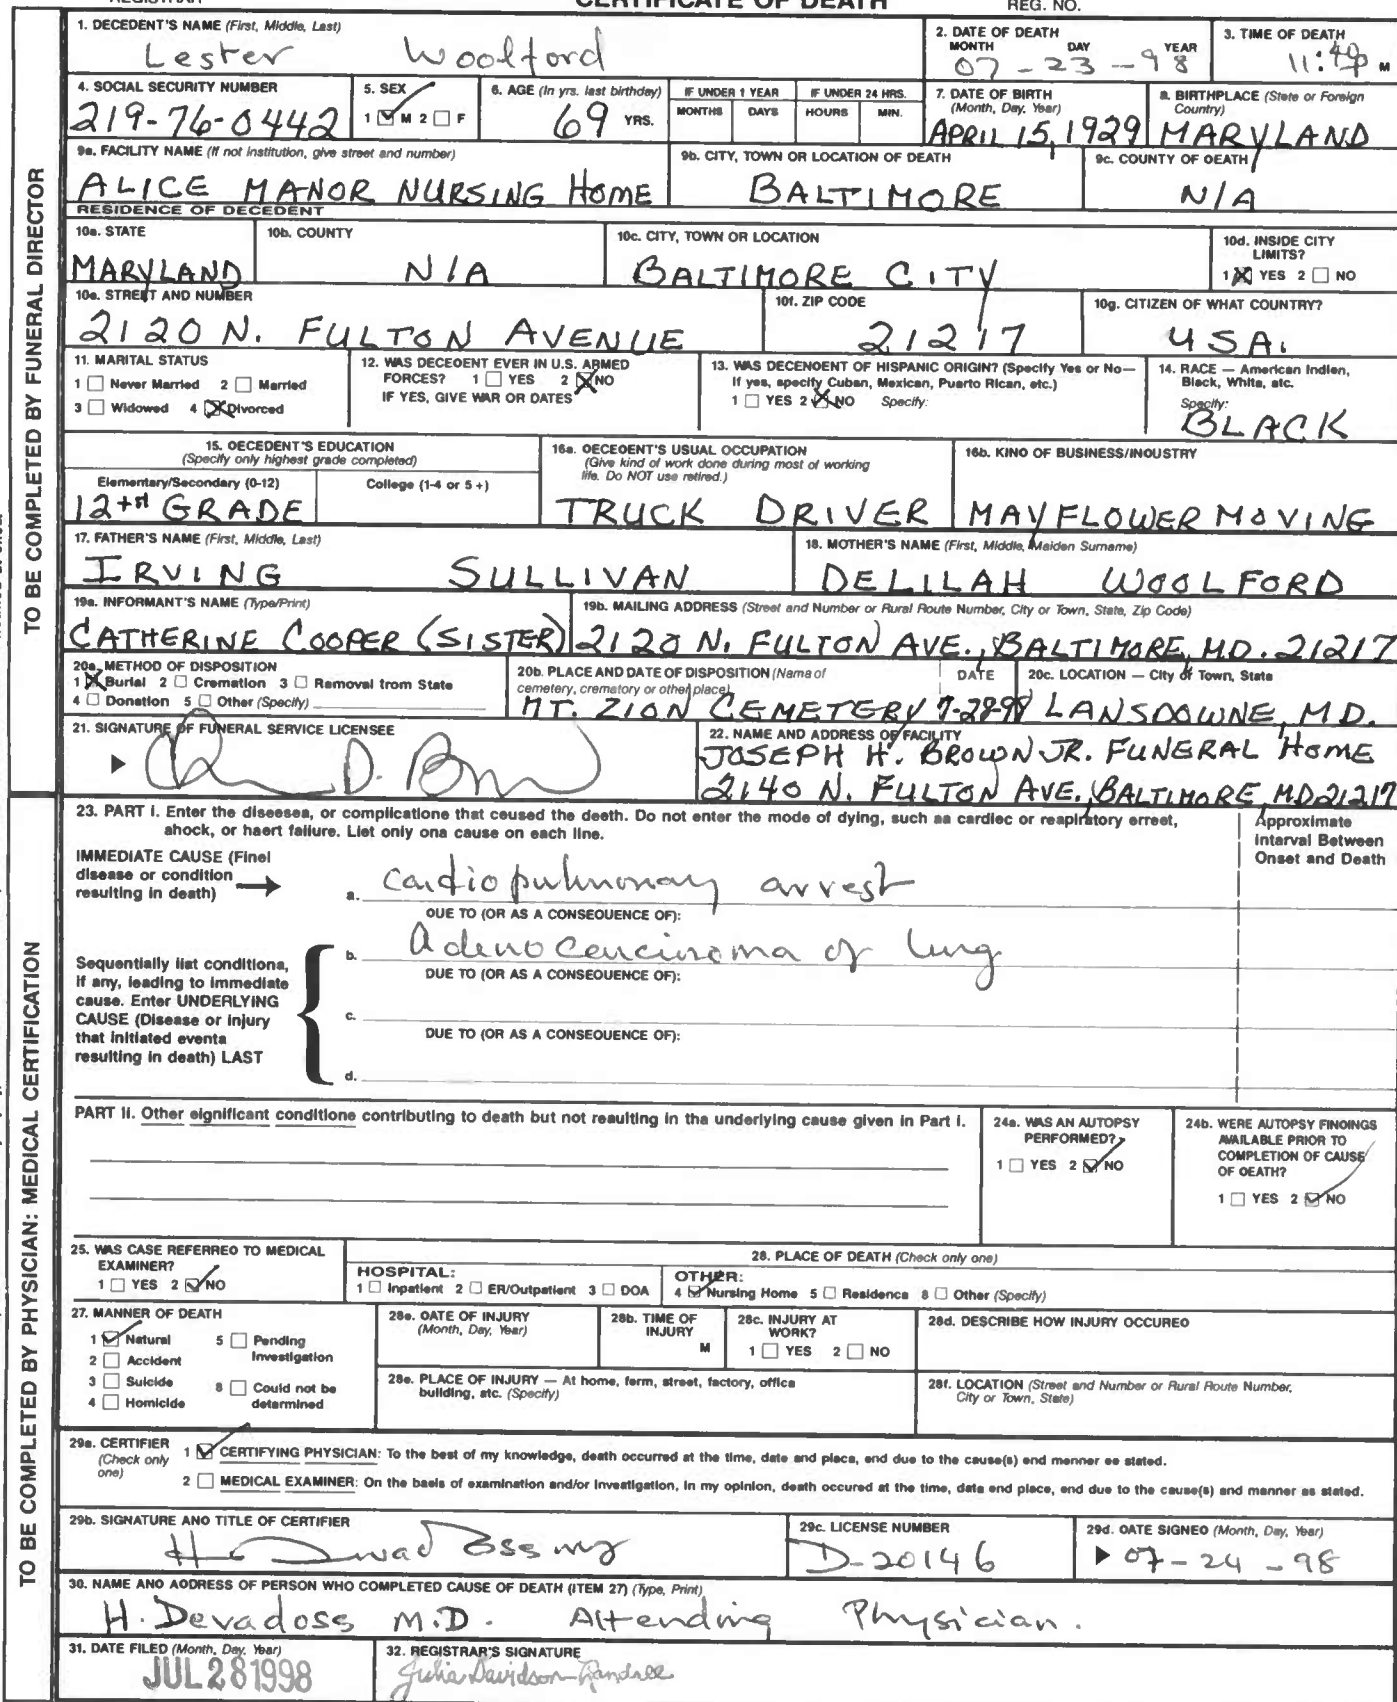 REGISTRAR
CERTIFICATE OF DEATH
REG. NO.
TO BE COMPLETED BY FUNERAL DIRECTOR
1. DECEDENT'S NAME (First, Middle, Last)
Lester Woolford
2. DATE OF DEATH
MONTH DAY YEAR
07-23-98
3. TIME OF DEATH
11:40p M
4. SOCIAL SECURITY NUMBER
219-76-0442
5. SEX
1 ☑ M 2 ☐ F
6. AGE (In yrs. last birthday)
69 YRS.
IF UNDER 1 YEAR
MONTHS DAYS
IF UNDER 24 HRS.
HOURS MIN.
7. DATE OF BIRTH
(Month, Day, Year)
APRIL 15, 1929
8. BIRTHPLACE (State or Foreign
Country)
MARYLAND
9a. FACILITY NAME (If not institution, give street and number)
ALICE MANOR NURSING HOME
9b. CITY, TOWN OR LOCATION OF DEATH
BALTIMORE
9c. COUNTY OF DEATH
N/A
RESIDENCE OF DECEDENT
10a. STATE
MARYLAND
10b. COUNTY
N/A
10c. CITY, TOWN OR LOCATION
BALTIMORE CITY
10d. INSIDE CITY
LIMITS?
1 ☒ YES 2 ☐ NO
10e. STREET AND NUMBER
2120 N. FULTON AVENUE
10f. ZIP CODE
21217
10g. CITIZEN OF WHAT COUNTRY?
USA.
11. MARITAL STATUS
1 ☐ Never Married 2 ☐ Married
3 ☐ Widowed 4 ☒ Divorced
12. WAS DECEDENT EVER IN U.S. ARMED
FORCES? 1 ☐ YES 2 ☒ NO
IF YES, GIVE WAR OR DATES
13. WAS DECENDENT OF HISPANIC ORIGIN? (Specify Yes or No—
If yes, specify Cuban, Mexican, Puerto Rican, etc.)
1 ☐ YES 2 ☒ NO Specify:
14. RACE — American Indian,
Black, White, etc.
Specify:
BLACK
15. DECEDENT'S EDUCATION
(Specify only highest grade completed)
Elementary/Secondary (0-12)
College (1-4 or 5+)
12th GRADE
16a. DECEDENT'S USUAL OCCUPATION
(Give kind of work done during most of working
life. Do NOT use retired.)
TRUCK DRIVER
16b. KIND OF BUSINESS/INDUSTRY
MAYFLOWER MOVING
17. FATHER'S NAME (First, Middle, Last)
IRVING SULLIVAN
18. MOTHER'S NAME (First, Middle, Maiden Surname)
DELILAH WOOLFORD
19a. INFORMANT'S NAME (Type/Print)
CATHERINE COOPER (SISTER)
19b. MAILING ADDRESS (Street and Number or Rural Route Number, City or Town, State, Zip Code)
2120 N. FULTON AVE., BALTIMORE, MD. 21217
20a. METHOD OF DISPOSITION
1 ☒ Burial 2 ☐ Cremation 3 ☐ Removal from State
4 ☐ Donation 5 ☐ Other (Specify)
20b. PLACE AND DATE OF DISPOSITION (Name of
cemetery, crematory or other place)
DATE
MT. ZION CEMETERY 7-28-98
20c. LOCATION — City or Town, State
LANSDOWNE, MD.
21. SIGNATURE OF FUNERAL SERVICE LICENSEE
22. NAME AND ADDRESS OF FACILITY
JOSEPH H. BROWN JR. FUNERAL HOME
2140 N. FULTON AVE., BALTIMORE, MD 21217
TO BE COMPLETED BY PHYSICIAN: MEDICAL CERTIFICATION
23. PART I. Enter the diseases, or complications that caused the death. Do not enter the mode of dying, such as cardiac or respiratory arrest,
shock, or heart failure. List only one cause on each line.
Approximate
Interval Between
Onset and Death
IMMEDIATE CAUSE (Final
disease or condition
resulting in death)
a. cardiopulmonary arrest
DUE TO (OR AS A CONSEQUENCE OF):
b. Adenocarcinoma of lung
DUE TO (OR AS A CONSEQUENCE OF):
Sequentially list conditions,
if any, leading to immediate
cause. Enter UNDERLYING
CAUSE (Disease or injury
that initiated events
resulting in death) LAST
c.
DUE TO (OR AS A CONSEQUENCE OF):
d.
PART II. Other significant conditions contributing to death but not resulting in the underlying cause given in Part I.
24a. WAS AN AUTOPSY
PERFORMED?
1 ☐ YES 2 ☑ NO
24b. WERE AUTOPSY FINDINGS
AVAILABLE PRIOR TO
COMPLETION OF CAUSE
OF DEATH?
1 ☐ YES 2 ☑ NO
25. WAS CASE REFERRED TO MEDICAL
EXAMINER?
1 ☐ YES 2 ☑ NO
26. PLACE OF DEATH (Check only one)
HOSPITAL:
1 ☐ Inpatient 2 ☐ ER/Outpatient 3 ☐ DOA
OTHER:
4 ☑ Nursing Home 5 ☐ Residence 6 ☐ Other (Specify)
27. MANNER OF DEATH
1 ☑ Natural 5 ☐ Pending
Investigation
2 ☐ Accident
3 ☐ Suicide 6 ☐ Could not be
determined
4 ☐ Homicide
28a. DATE OF INJURY
(Month, Day, Year)
28b. TIME OF
INJURY
M
28c. INJURY AT
WORK?
1 ☐ YES 2 ☐ NO
28d. DESCRIBE HOW INJURY OCCURED
28e. PLACE OF INJURY — At home, farm, street, factory, office
building, etc. (Specify)
28f. LOCATION (Street and Number or Rural Route Number,
City or Town, State)
29a. CERTIFIER
(Check only
one)
1 ☑ CERTIFYING PHYSICIAN: To the best of my knowledge, death occurred at the time, date and place, and due to the cause(s) and manner as stated.
2 ☐ MEDICAL EXAMINER: On the basis of examination and/or investigation, in my opinion, death occured at the time, date and place, and due to the cause(s) and manner as stated.
29b. SIGNATURE AND TITLE OF CERTIFIER
29c. LICENSE NUMBER
D-20146
29d. DATE SIGNED (Month, Day, Year)
07-24-98
30. NAME AND ADDRESS OF PERSON WHO COMPLETED CAUSE OF DEATH (ITEM 27) (Type, Print)
H. Devadoss M.D. Attending Physician.
31. DATE FILED (Month, Day, Year)
JUL 28 1998
32. REGISTRAR'S SIGNATURE
Julia Davidson-Randall